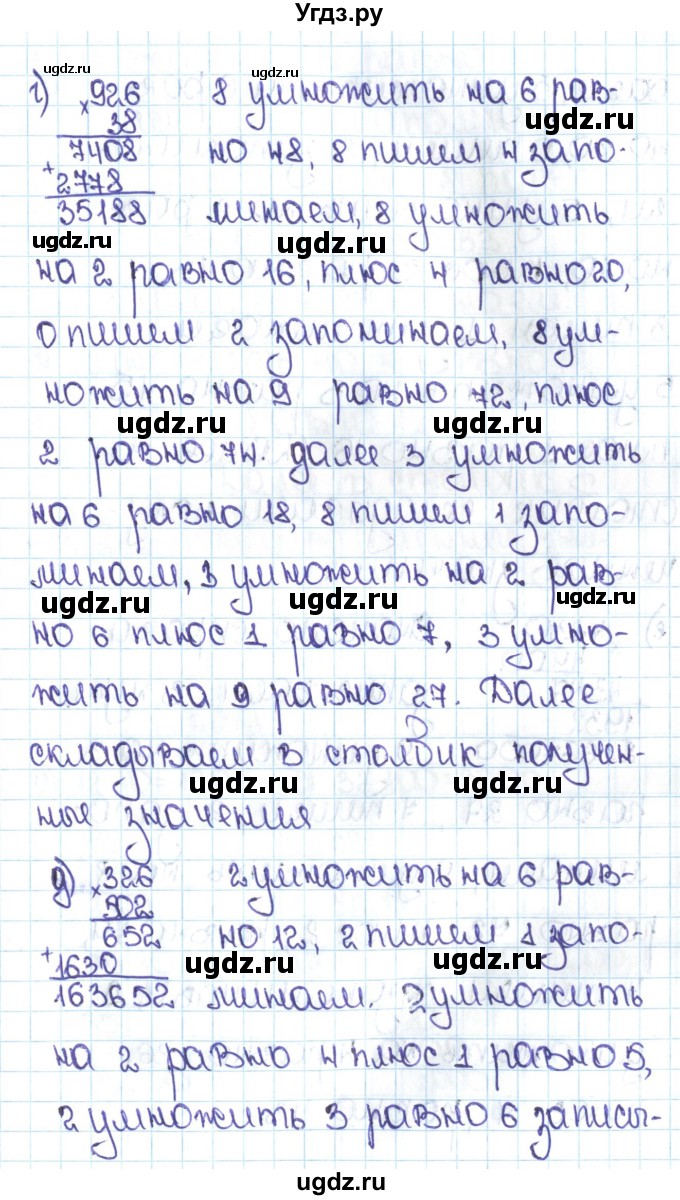 Угдз.ру
ugdz.ru ugdz.ru
г) ×926 8 умножить на 6 рав-
38 ugdz.ru
7408 но 48, 8 пишем 4 запо-
+2778
35188 минаем, 8 умножить
ugdz.ru ugdz.ru ugdz.ru
на 2 равно 16, плюс 4 равно 20,
0 пишем 2 запоминаем, 8 ум-
ножить на 9 равно 72, плюс
ugdz.ru ugdz.ru
2 равно 74. далее 3 умножить
на 6 равно 18, 8 пишем 1 запо-
ugdz.ru ugdz.ru
минаем, 3 умножить на 2 рав-
ugdz.ru ugdz.ru ugdz.ru
но 6 плюс 1 равно 7, 3 умно-
жить на 9 равно 27. Далее
складываем в столбик получен-
ugdz.ru ugdz.ru
ные значения
д) ×326 2 умножить на 6 рав-
502
652 но 12, 2 пишем 1 запо-
+1630 ugdz.ru ugdz.ru
163652 минаем. 2 умножить
на 2 равно 4 плюс 1 равно 5,
2 умножить 3 равно 6 записы-
ugdz.ru